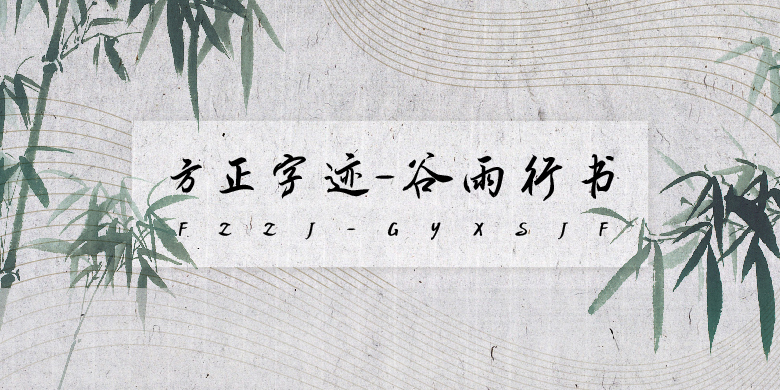 方正字迹-谷雨行书
FZZJ-GYXSJF